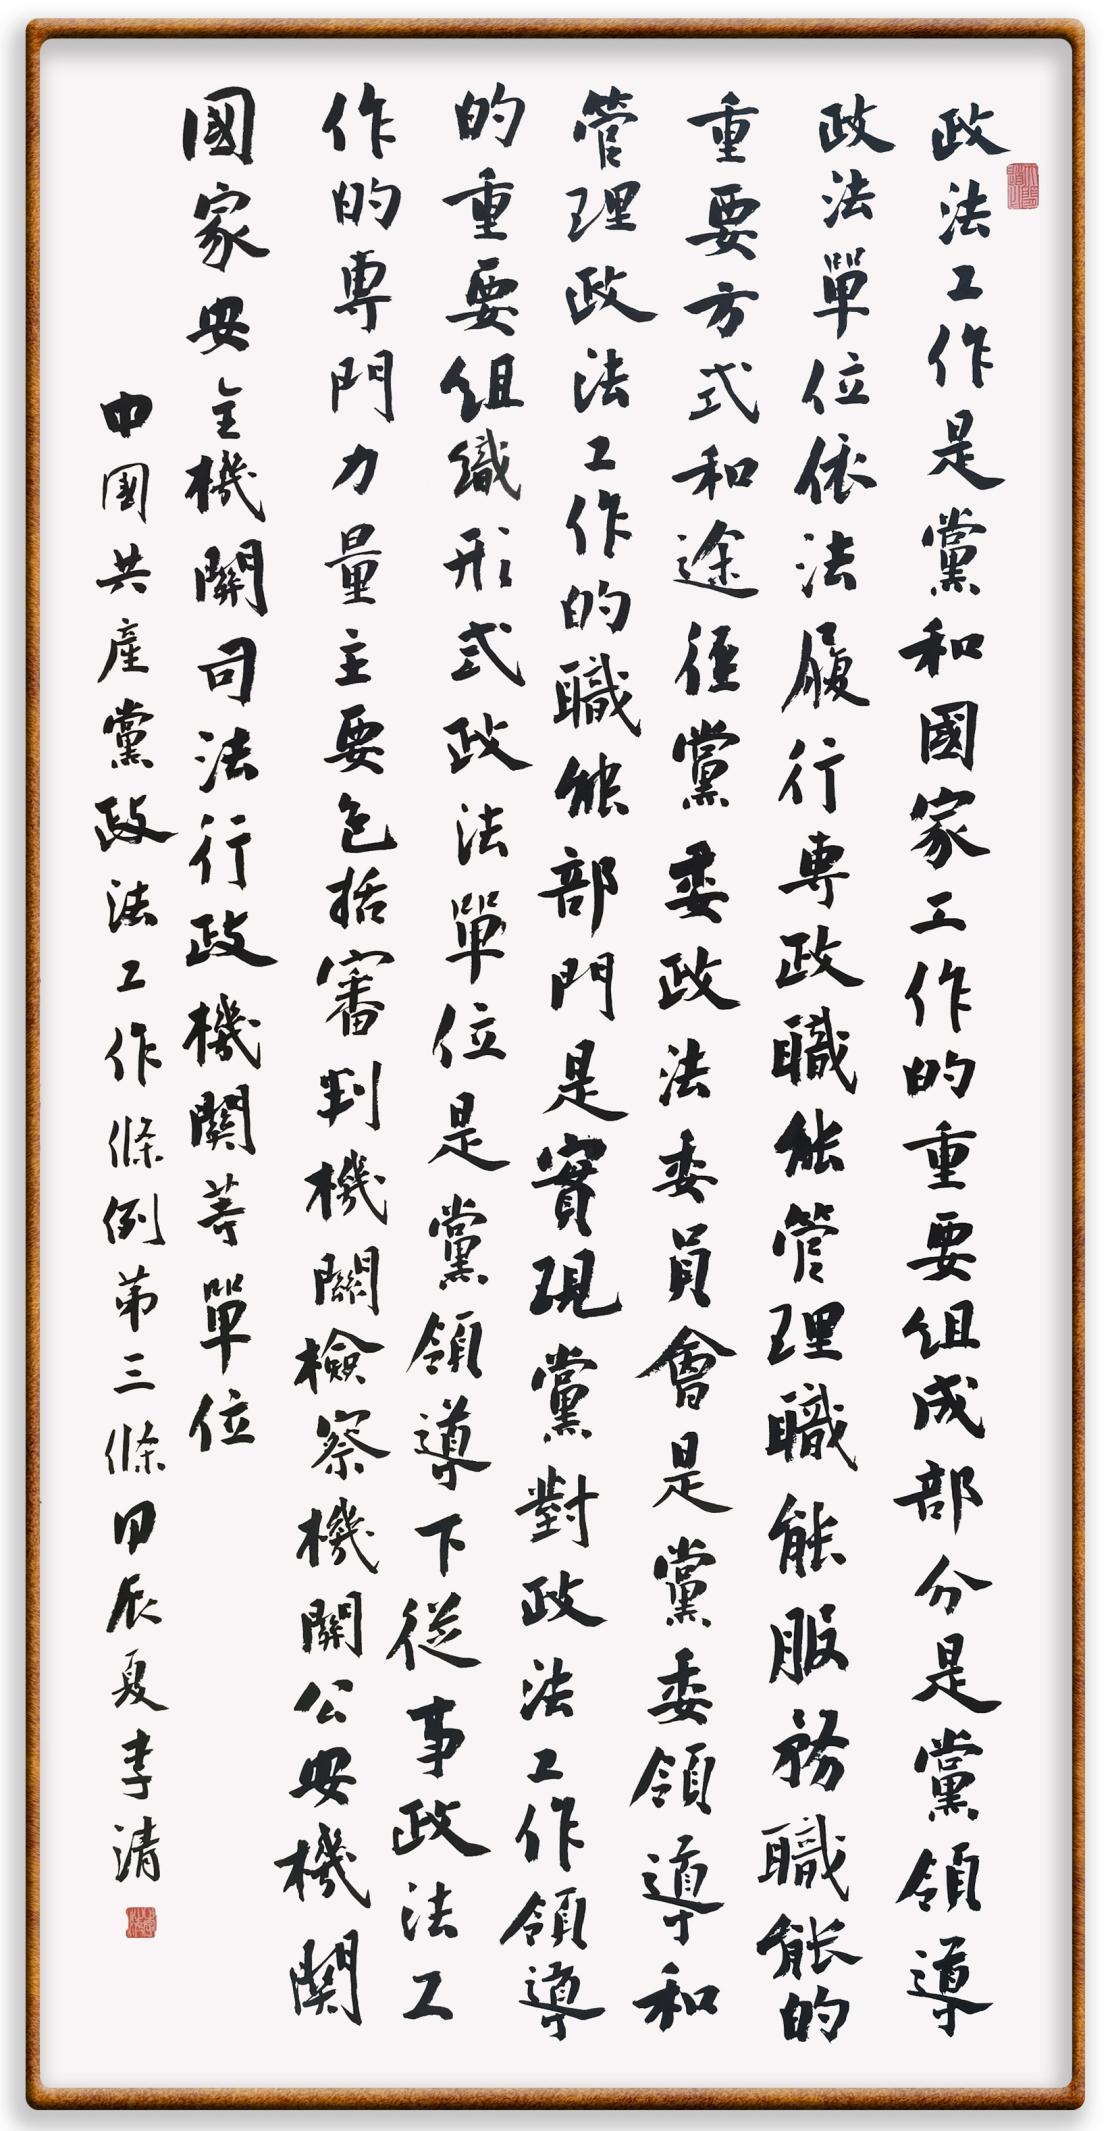 政法工作是黨和國家工作的重要組成部分是黨領導
政法單位依法履行專政職能管理職能服務職能的
重要方式和途徑黨委政法委員會是黨委領導和
管理政法工作的職能部門是實現黨對政法工作領導
的重要組織形式政法單位是黨領導下從事政法工
作的專門力量主要包括審判機關檢察機關公安機關
國家安全機關司法行政機關等單位
中國共產黨政法工作條例第三條甲辰夏李清